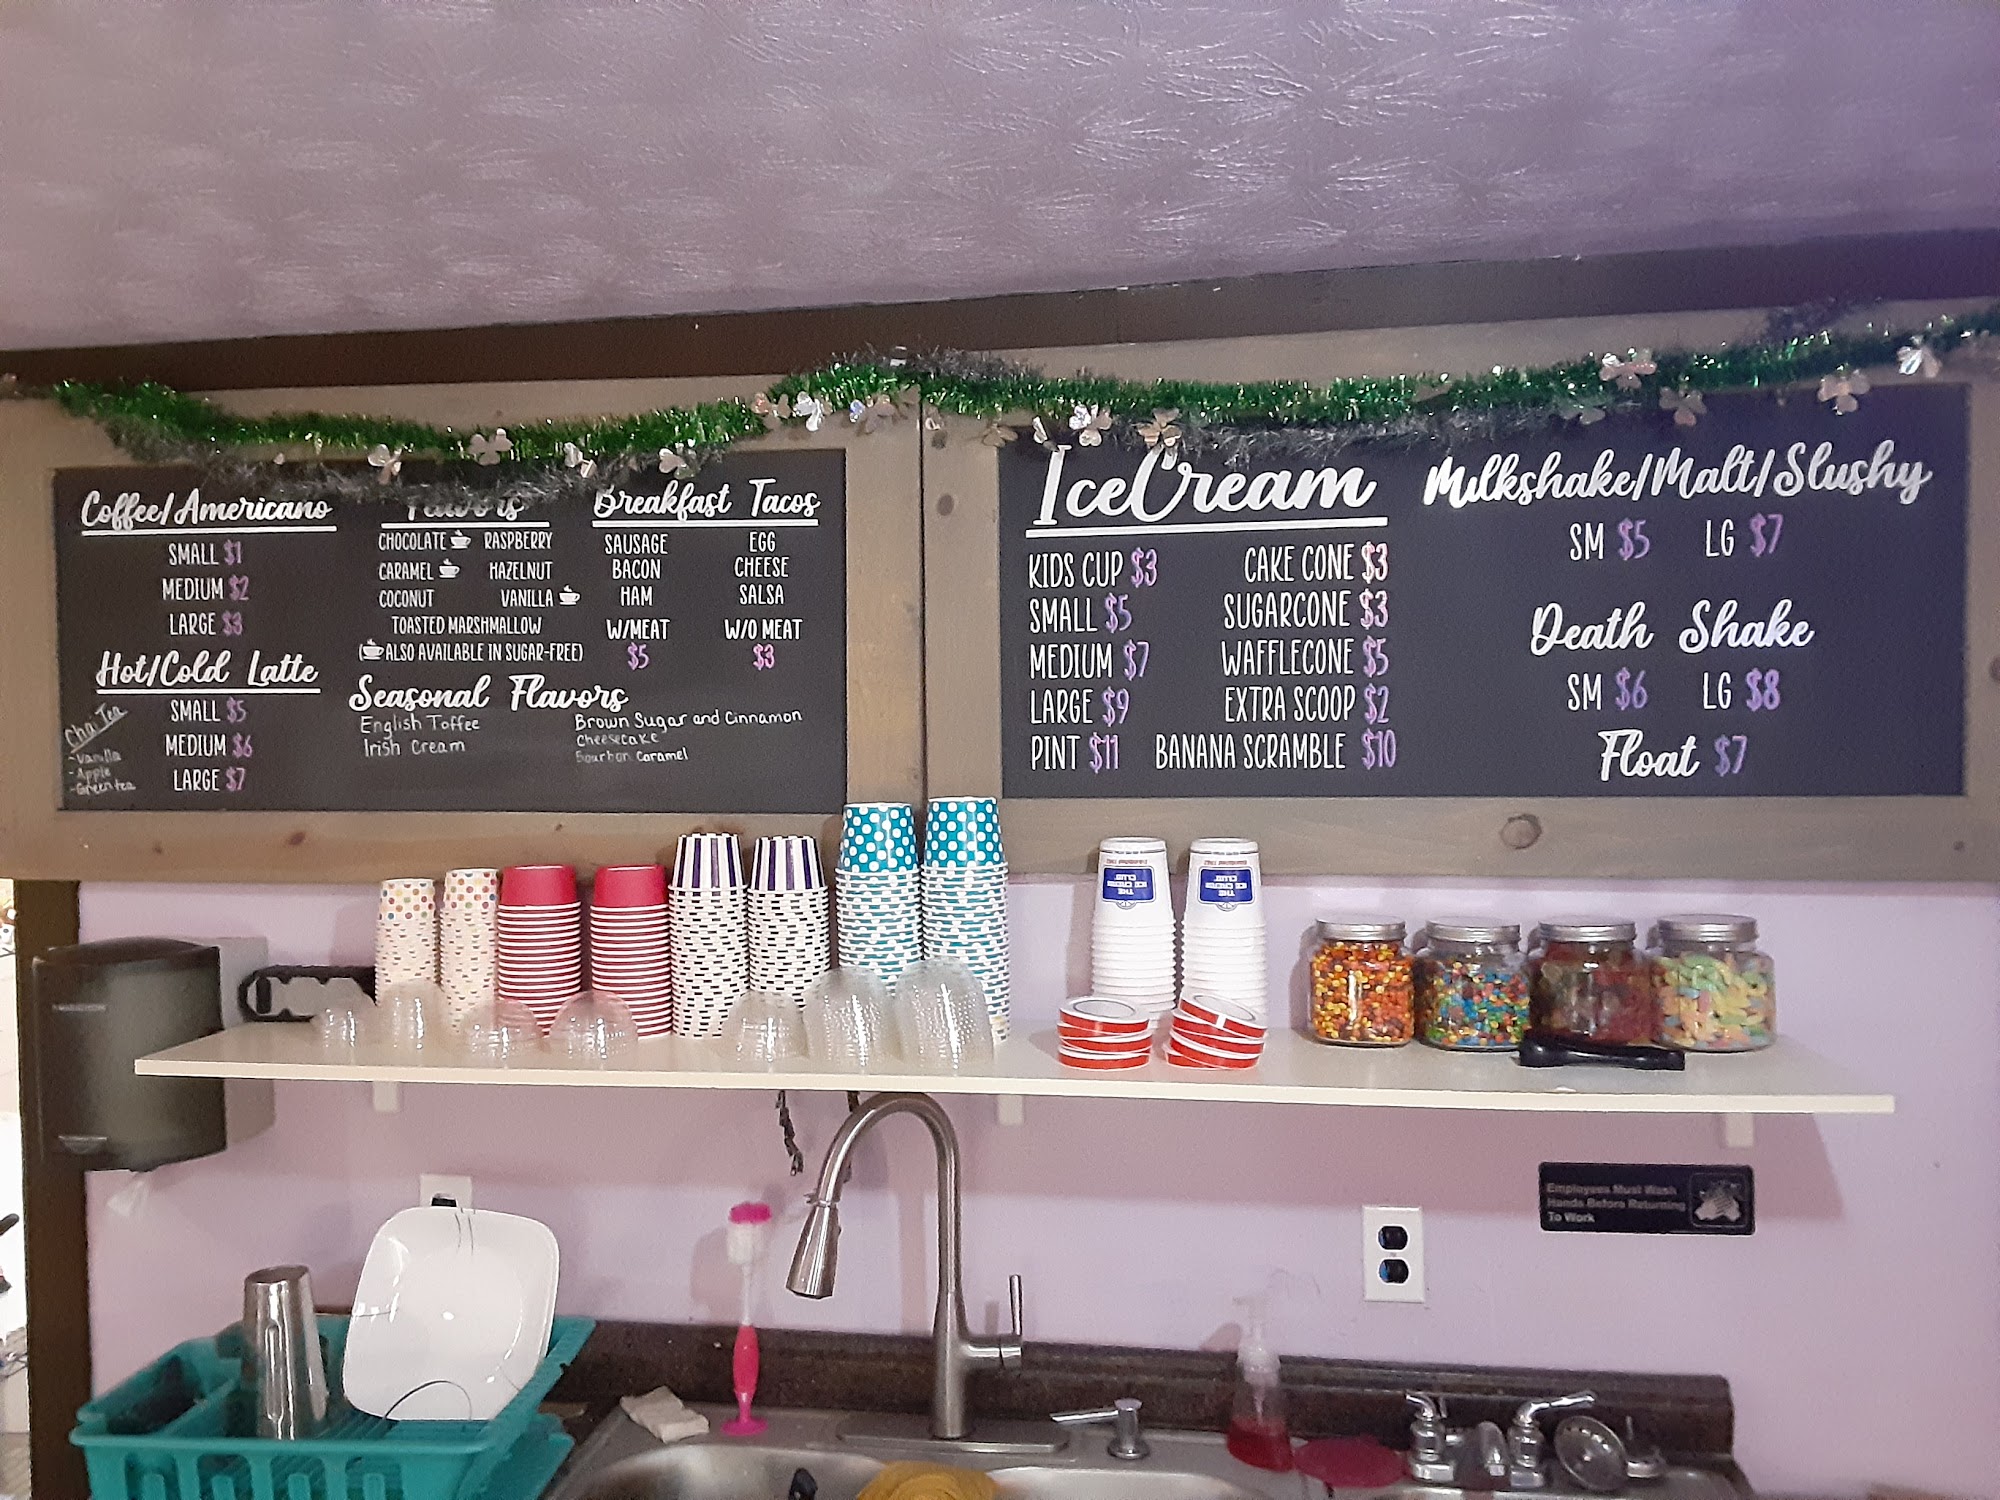 Coffee/Americano
SMALL $1
MEDIUM $2
LARGE $3
Hot/Cold Latte
SMALL $5
MEDIUM $6
LARGE $7
Chai Tea
-Vanilla
-Apple
-Green tea
Flavors
CHOCOLATE RASPBERRY
CARAMEL HAZELNUT
COCONUT VANILLA
TOASTED MARSHMALLOW
( ALSO AVAILABLE IN SUGAR-FREE)
Breakfast Tacos
SAUSAGE EGG
BACON CHEESE
HAM SALSA
W/MEAT W/O MEAT
$5 $3
Seasonal Flavors
English Toffee
Irish Cream
Brown Sugar and Cinnamon
Cheesecake
Bourbon Caramel
IceCream
KIDS CUP $3 CAKE CONE $3
SMALL $5 SUGARCONE $3
MEDIUM $7 WAFFLECONE $5
LARGE $9 EXTRA SCOOP $2
PINT $11 BANANA SCRAMBLE $10
Milkshake/Malt/Slushy
SM $5 LG $7
Death Shake
SM $6 LG $8
Float $7
THE
ICE CREAM
CLUB
THE
ICE CREAM
CLUB
Employees Must Wash
Hands Before Returning
To Work